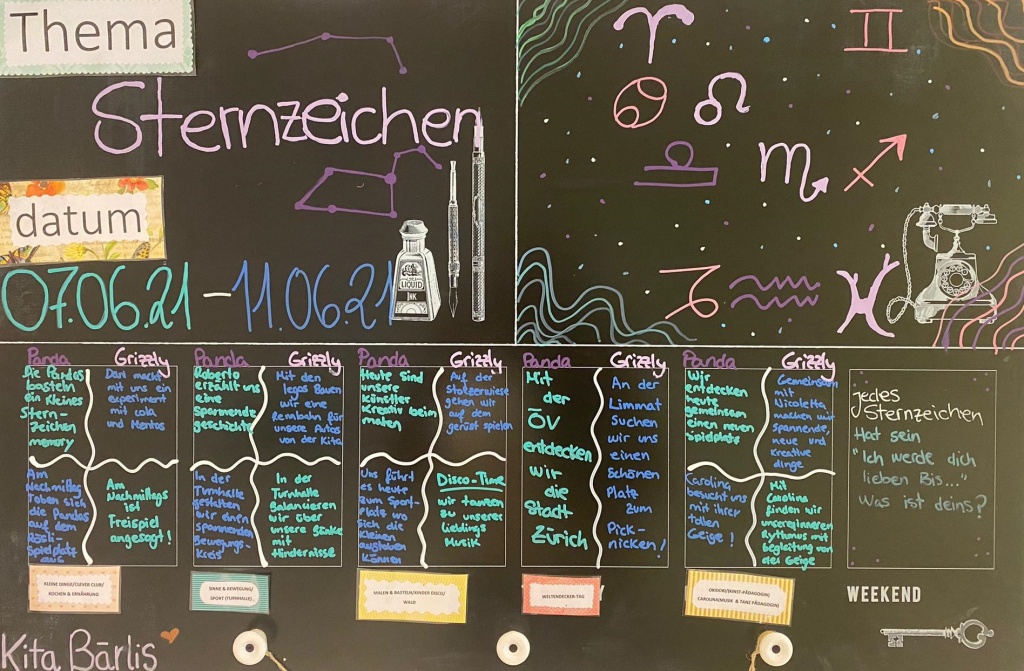 Thema
Sternzeichen
datum
07.06.21 - 11.06.21
LIQUID
INK
Panda
Die Pandas
basteln
ein kleines
Stern-
zeichen
memory
Grizzly
Dani macht
mit uns ein
experiment
mit cola
und Mentos
Am
Nachmittag
Toben sich
die Pandas
auf dem
Rösli-
spielplatz
aus
Am
Nachmittags
ist
Freispiel
angesagt!
KLEINE DINGE/CLEVER CLUB/
KOCHEN & ERNÄHRUNG
Panda
Roberto
erzählt uns
eine
Spannende
geschichte
Grizzly
Mit den
legos Bauen
wir eine
Rennbahn für
unsere Autos
von der Kita
In der
Turnhalle
gestalten
wir einen
spannenden
Bewegungs-
Kreis
In der
Turnhalle
Balancieren
wir über
unsere Bänke
mit
Hindernisse
SINNE & BEWEGUNG/
SPORT (TURNHALLE)
Panda
Heute Sind
unsere
künstler
Kreativ beim
malen
Grizzly
Auf der
Stolzewiese
gehen wir
auf dem
gerüst spielen
Uns führt
es heute
zum Sport-
platz wo
sich die
kleinen
austoben
können
Disco-Time
wir tanzen
zu unserer
lieblings
Musik
MALEN & BASTELN/KINDER DISCO/
WALD
Panda
Mit
der
ÖV
entdecken
wir
die
Stadt
Zürich
Grizzly
An der
Limmat
Suchen
wir uns
einen
Schönen
Platz
zum
Pick-
nicken!
WELTENDECKER-TAG
Panda
Wir
entdecken
heute
gemeinsam
einen neuen
spielplatz
Grizzly
Gemeinsam
mit
Nicoletta
machen wir
spannende,
neue und
Kreative
dinge
Carolina
besucht uns
mit ihrer
tollen
Geige!
Mit
Carolina
finden wir
unsereginneren
Rythmus mit
begleitung von
der Geige
CAROLINA(MUSIK & TANZ PÄDAGOGIN)
jedes
Sternzeichen
Hat sein
"Ich werde dich
lieben Bis..."
Was ist deins?
WEEKEND
Kita Bärlis